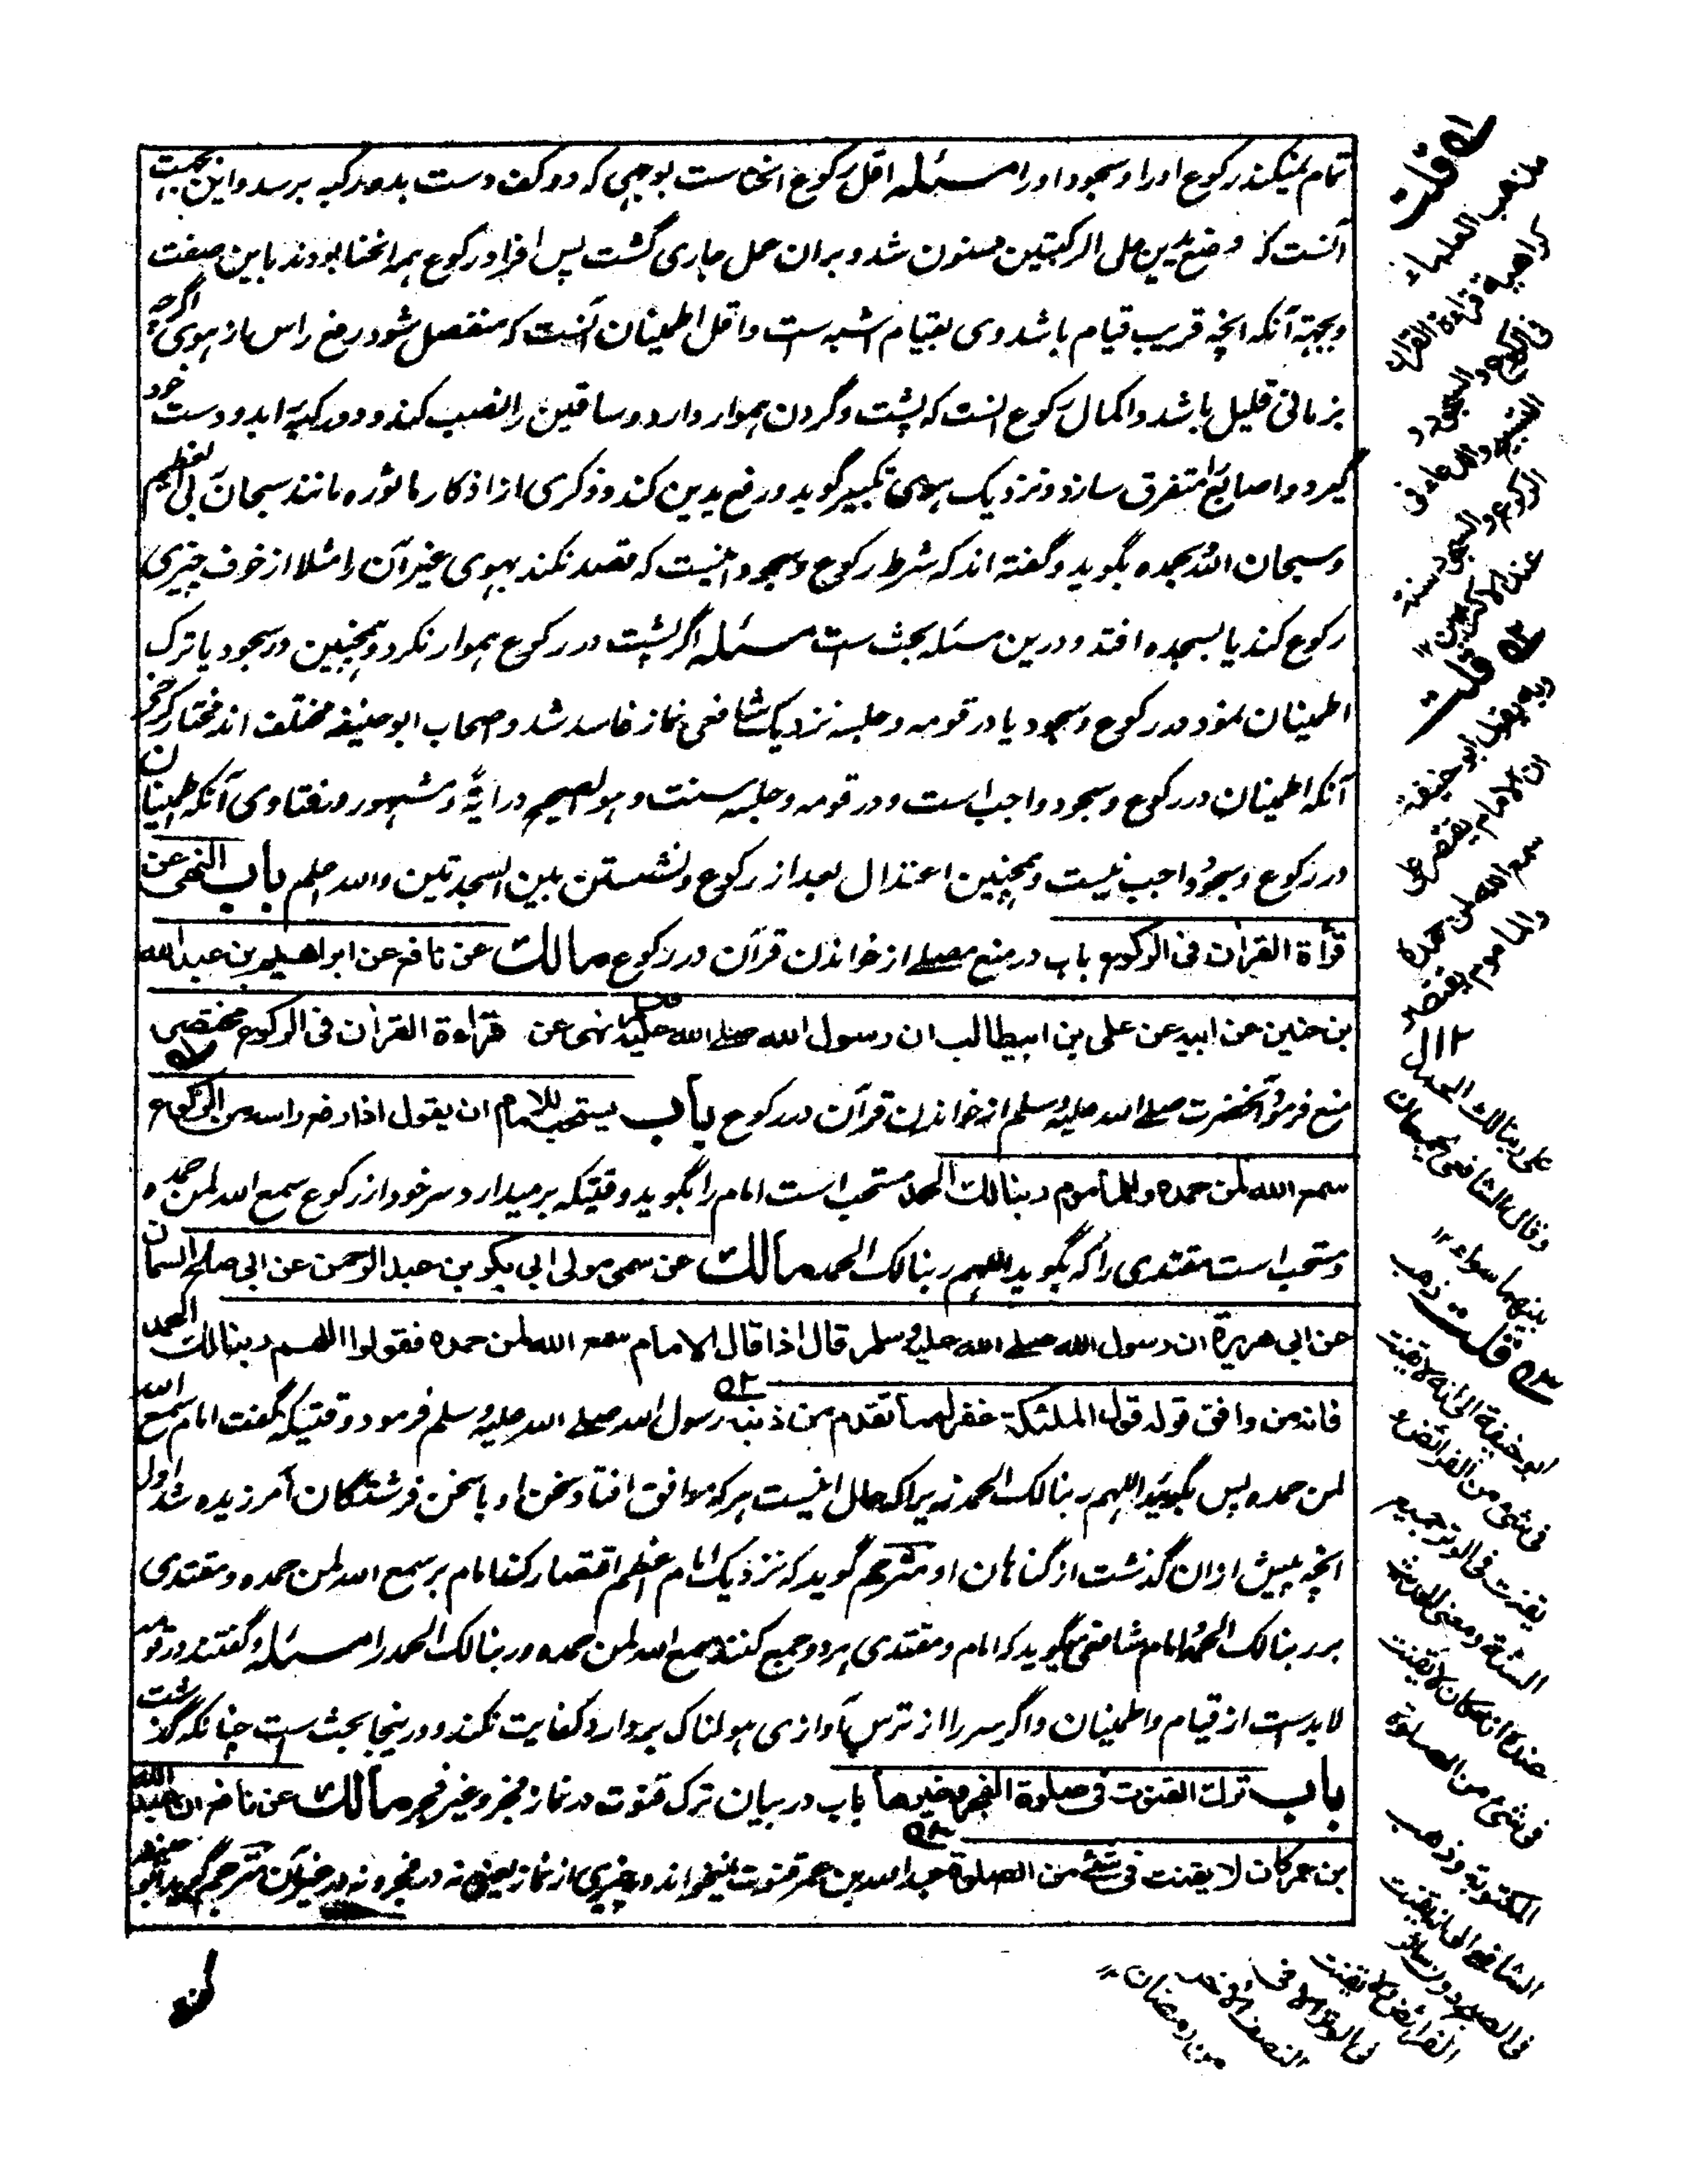 تمام نمیکند رکوع او را و سجود او را مسئله اقل رکوع انحناست بوجهی که دو کف دست بدو رکبه برسد و این بجهت
آنست که وضع یدین علی الرکبتین مسنون شد و بران عمل جاری گشت پس افراد رکوع همه انحنا بودند باین صفت
و بجهة آنکه انچه قریب قیام باشد وی بقیام اشبه است و اقل اطمینان آنست که منفصل شود رفع راس از هوی اگرچه
بزمانی قلیل باشد و اکمال رکوع انست که پشت و گردن هموار دارد و ساقین را نصب کند و دو رکبه را بدو دست خود
گیرد و اصابع را متفرق سازد و نزدیک هوی تکبیر گوید و رفع یدین کند و ذکری از اذکار ماثوره مانند سبحان ربی العظیم
و سبحان الله بحمده بگوید و گفته اند که شرط رکوع و سجود انیست که قصد نکند بهوی غیر آن را مثلا از خوف چیزی
رکوع کند یا بسجده افتد و درین مسئله بحث ست مسئله اگر پشت در رکوع هموار نکرد و همچنین در سجود یا ترک
اطمینان نمود در رکوع و سجود یا در قومه و جلسه نزدیک شافعی نماز فاسد شد و اصحاب ابو حنیفه مختلف اند مختار کرخی
آنکه اطمینان در رکوع و سجود واجب است و در قومه و جلسه سنت و هو الصحیح درایةً و مشهور در فتاوی آنکه اطمینان
در رکوع و سجود واجب نیست و همچنین اعتدال بعد از رکوع و نشستن بین السجدتین والله اعلم باب النهی عن
قرأة القرآن فی الرکوع باب در منع مصلے از خواندن قرآن در رکوع مالك عن نافع عن ابراهیم بن عبدالله
بن حنین عن ابیه عن علی بن ابیطالب ان رسول الله صلے الله علیه وسلم نهی عن قراءة القرآن فی الرکوع مختصر
منع فرمود آنحضرت صلے الله علیه وسلم از خواندن قرآن در رکوع باب یستحب للامام ان یقول اذا رفع راسه من الرکوع
سمع الله لمن حمده وللمأموم ربنا لك الحمد مستحب است امام را بگوید وقتیکه برمیدارد سر خود از رکوع سمع الله لمن حمده
و مستحب است مقتدی را که بگوید اللهم ربنا لک الحمد مالك عن سمی مولی ابی بکر بن عبد الرحمن عن ابی صالح السمان
عن ابی هریرة ان رسول الله صلے الله علیه وسلم قال اذا قال الامام سمع الله لمن حمده فقولوا اللهم ربنا لك الحمد
فانه من وافق قوله قول الملئکة غفر له ما تقدم من ذنبه رسول الله صلے الله علیه وسلم فرمود وقتیکه گفت امام سمع الله
لمن حمده پس بگوئید اللهم ربنا لک الحمد زیراکه حال انیست هر که موافق افتاد سخن او با سخن فرشتگان آمرزیده شد اورا
انچه پیش ازان گذشت از گناهان او مترجم گوید که نزدیک امام اعظم اقتصار کند امام بر سمع الله لمن حمده و مقتدی
بر ربنا لک الحمد و امام شافعی میگوید که امام و مقتدی هر دو جمع کنند سمع الله لمن حمده و ربنا لک الحمد را مسئله و گفتند در قومه
لا بد ست از قیام و اطمینان و اگر سر را از ترس آوازی هولناک بردارد کفایت نکند و درینجا بحث ست چنانکه گذشت
باب ترك القنوت فی صلوة الفجر وغیرها باب در بیان ترک قنوت در نماز فجر و غیر فجر مالك عن نافع ان عبد الله
بن عمر کان لا یقنت فی شئ من الصلوة عبد الله بن عمر قنوت نمیخواند در چیزی از نماز یعنی نه در فجر و نه در غیر آن مترجم گوید
قلت
مذهب العلماء
کراهیة قراءة القرآن
فی الرکوع والسجود
التسبیح والدعاء فی
الرکوع والسجود سنة
عند الاکثرین ۱۲
قلت
وبه یقول ابو حنیفة
ان الامام یقتصر علی
سمع الله لمن حمده
والماموم یقتصر
علی ربنا لك الحمد
وقال الشافعی یجمعان
بینهما سواء ۱۲
قلت ذهب
ابو حنیفة الی انه لا یقنت
فی شئ من الفرائض و
یقنت فی الوتر جمیع
السنة ومعنی الحدیث
عنده انه کان لا یقنت
فی شئ من الصلوة
المکتوبة وذهب
الشافعی الی انه یقنت
فی الصبح دون سائر
الفرائض ولا یقنت
فی الوتر الا فی
النصف الاخیر
من رمضان ۱۲